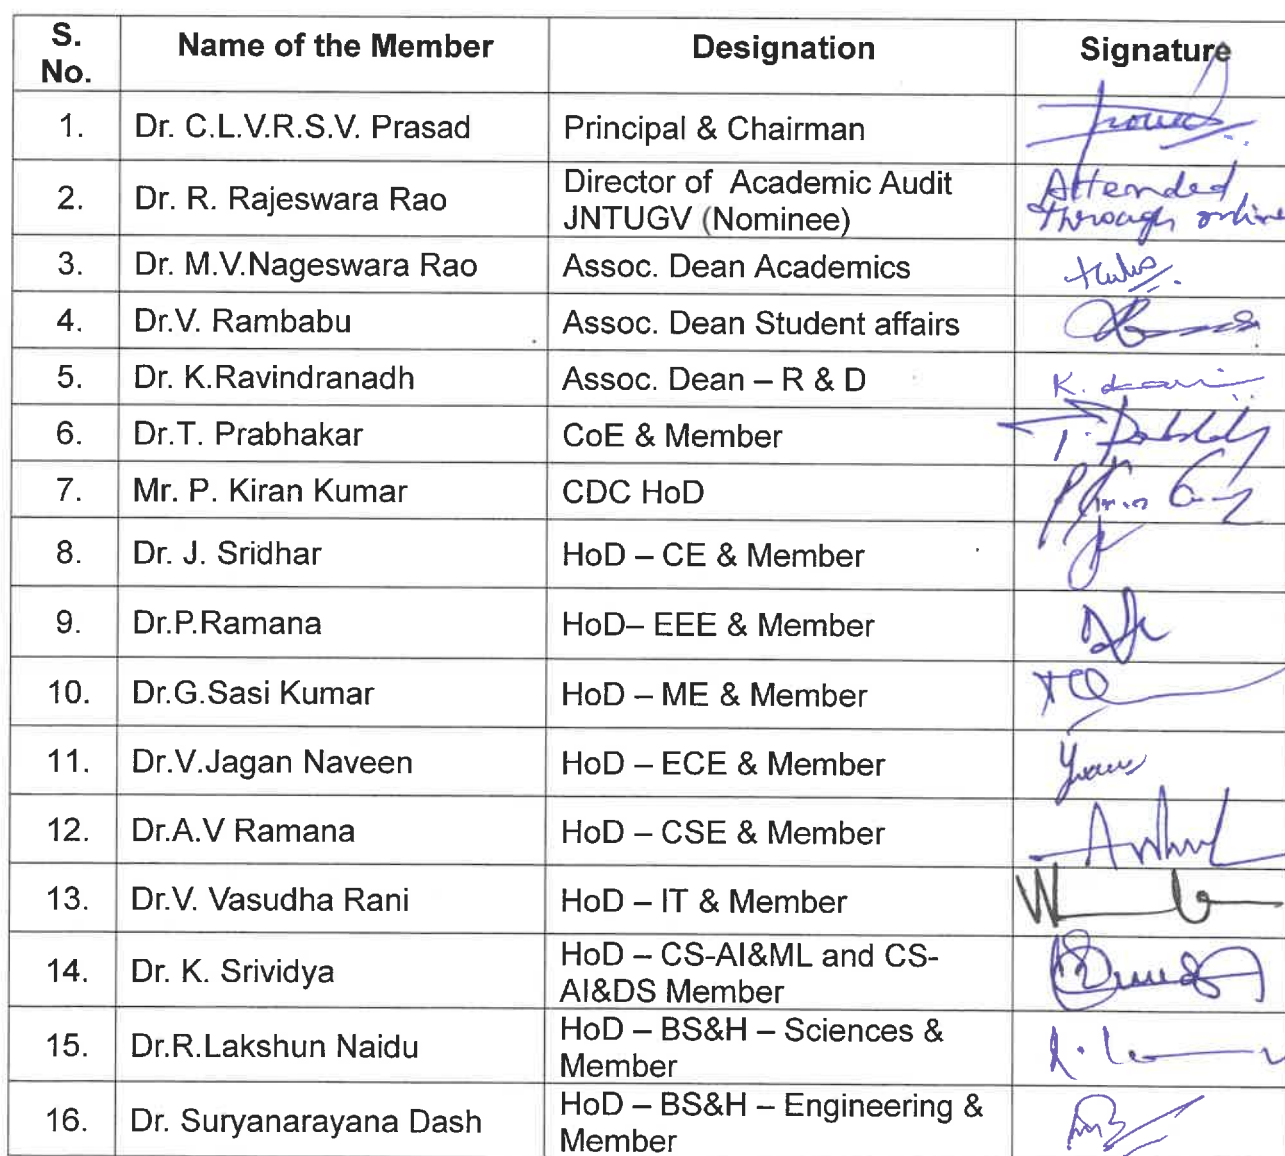 S. No. Name of the Member Designation Signature
1. Dr. C.L.V.R.S.V. Prasad Principal & Chairman
2. Dr. R. Rajeswara Rao Director of Academic Audit JNTUGV (Nominee) Attended through online
3. Dr. M.V.Nageswara Rao Assoc. Dean Academics
4. Dr.V. Rambabu Assoc. Dean Student affairs
5. Dr. K.Ravindranadh Assoc. Dean – R & D
6. Dr.T. Prabhakar CoE & Member
7. Mr. P. Kiran Kumar CDC HoD
8. Dr. J. Sridhar HoD – CE & Member
9. Dr.P.Ramana HoD– EEE & Member
10. Dr.G.Sasi Kumar HoD – ME & Member
11. Dr.V.Jagan Naveen HoD – ECE & Member
12. Dr.A.V Ramana HoD – CSE & Member
13. Dr.V. Vasudha Rani HoD – IT & Member
14. Dr. K. Srividya HoD – CS-AI&ML and CS-AI&DS Member
15. Dr.R.Lakshun Naidu HoD – BS&H – Sciences & Member
16. Dr. Suryanarayana Dash HoD – BS&H – Engineering & Member